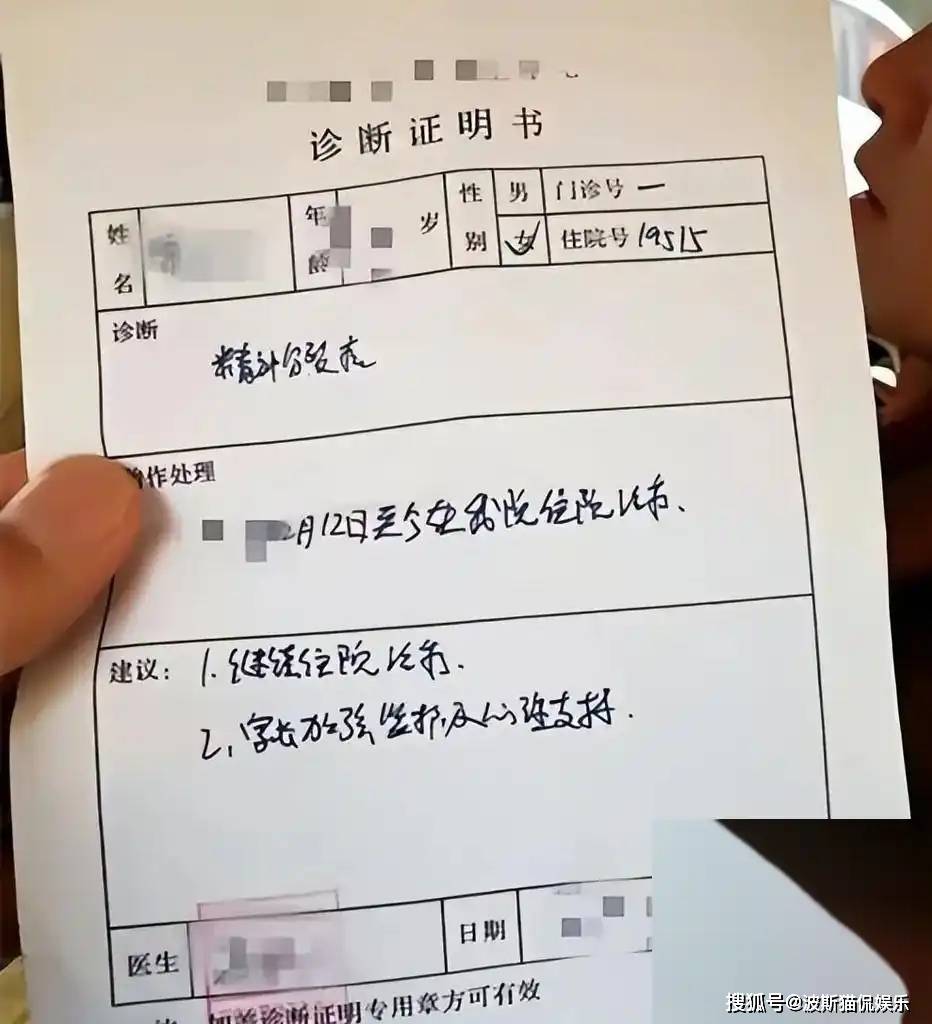 诊断证明书
姓名 年龄 岁 性别 男 女 门诊号 一
住院号 19515
诊断
精神分裂症
作处理
月12日至今在我院住院治疗、
建议: 1.继续住院治疗.
2.家长加强监护及心理支持.
医生 日期
加盖诊断证明专用章方可有效
搜狐号@波斯猫侃娱乐